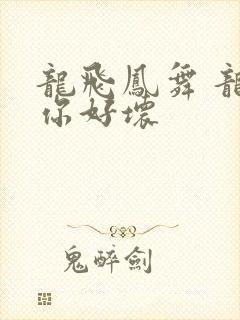 龍飛鳳舞 龍
你好壞
鬼醉劍